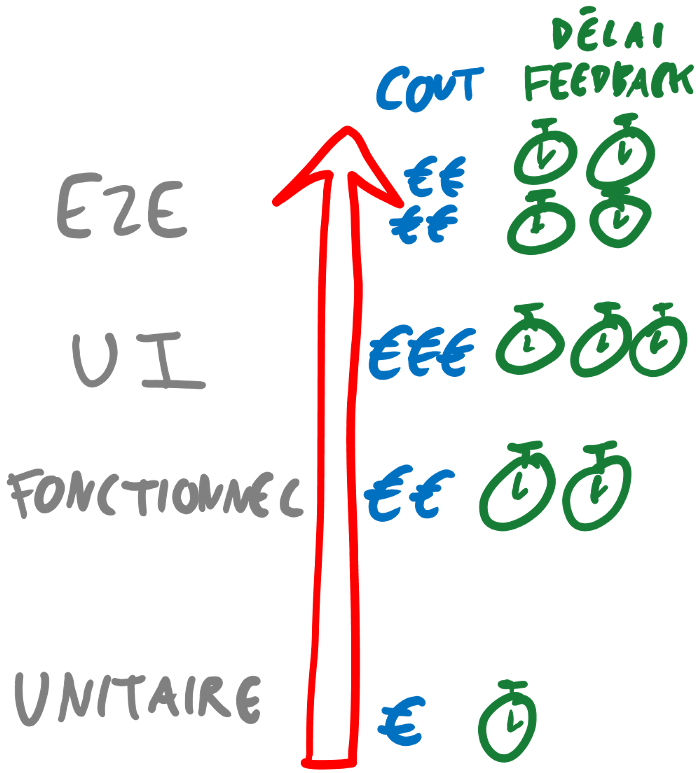 DÉLAI
COUT FEEDBACK
€€
E2E €€
UI €€€
FONCTIONNEL €€
UNITAIRE €